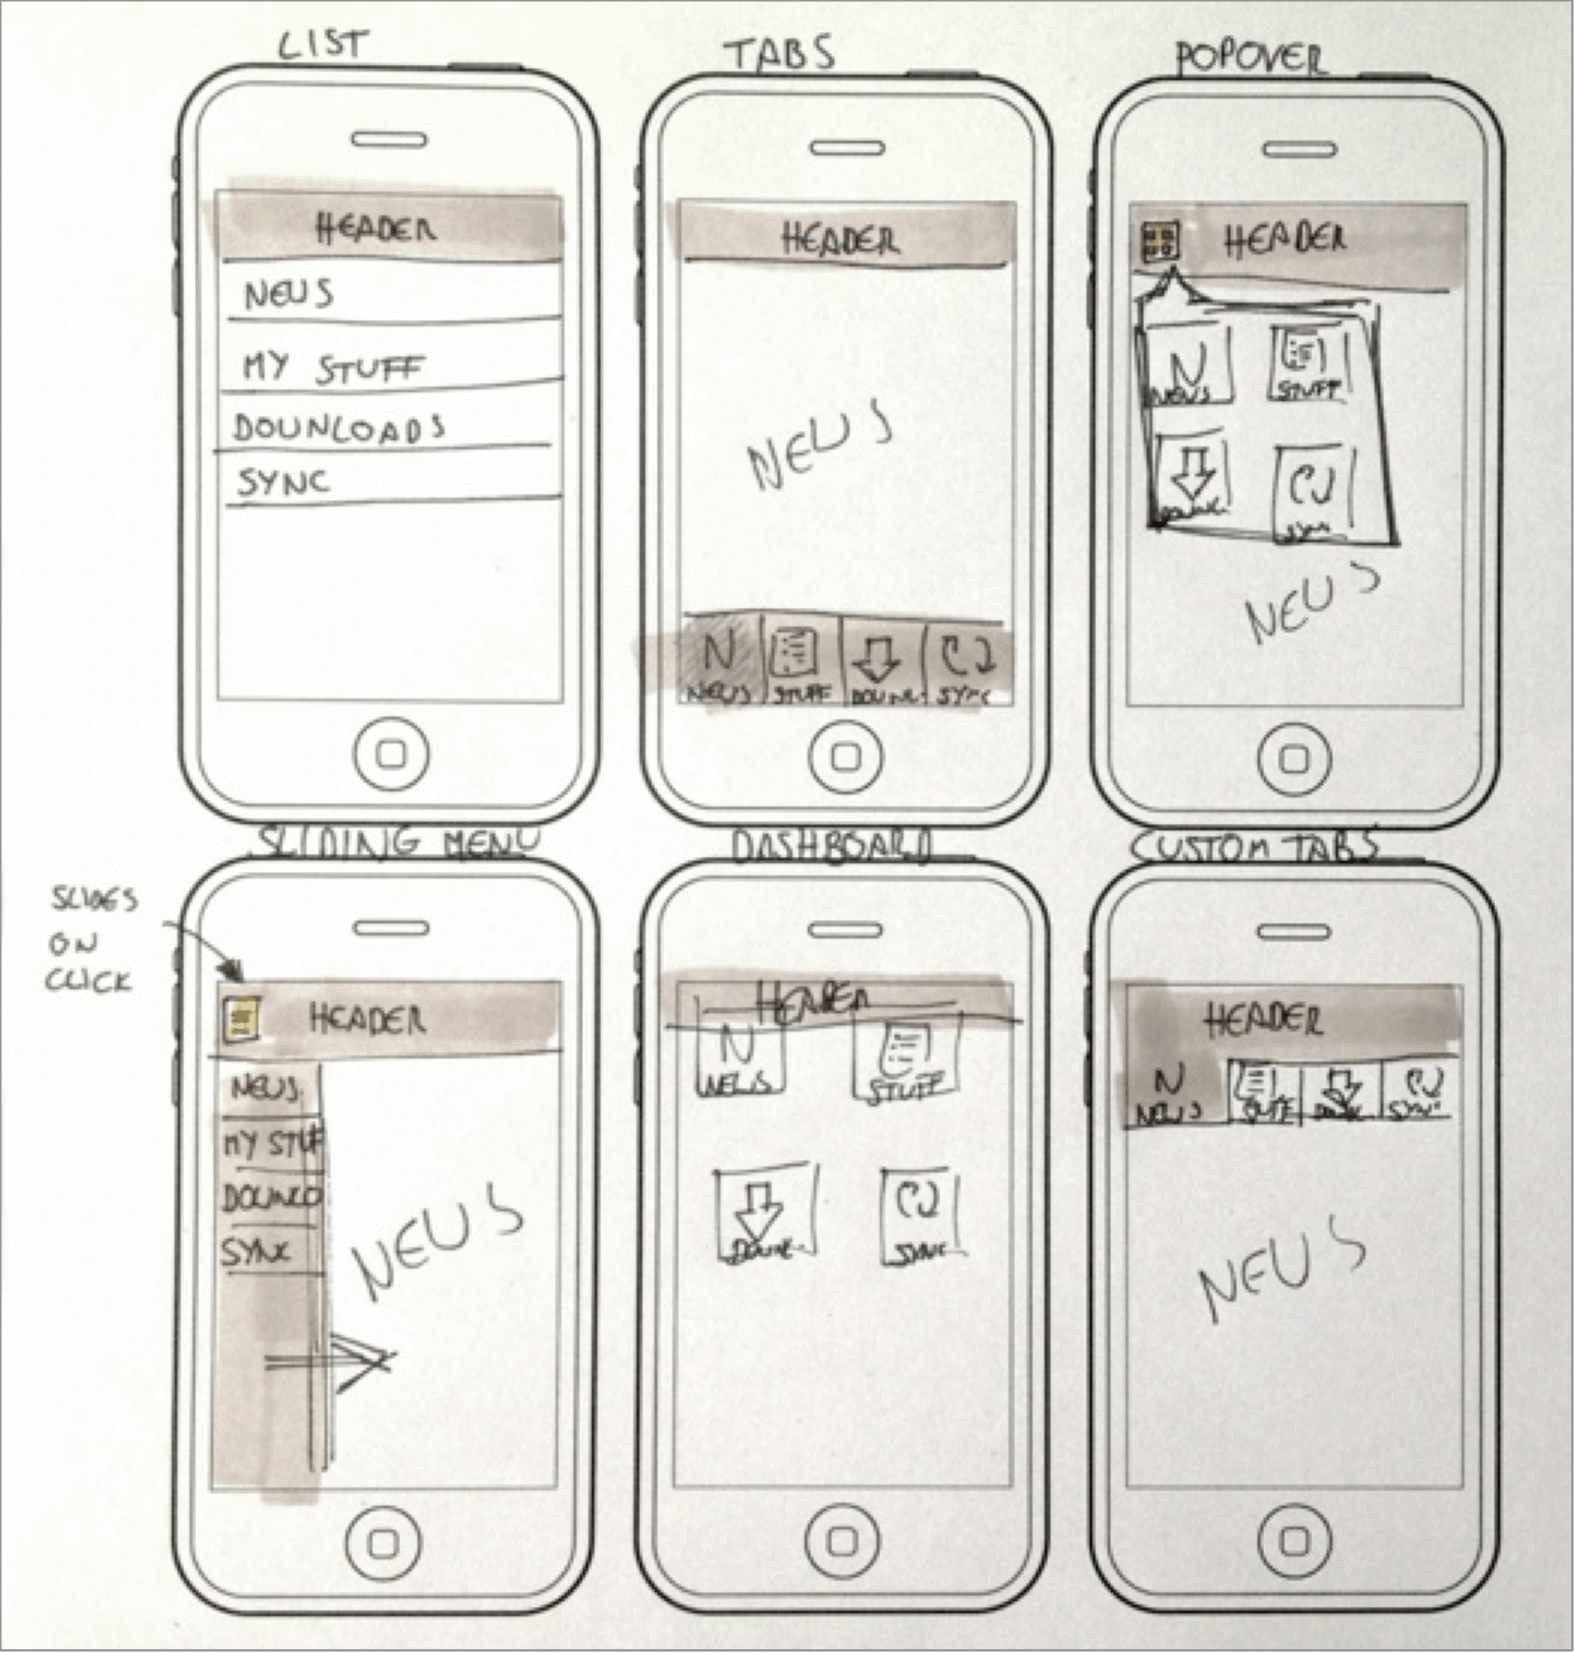 LIST
HEADER
NEWS
MY STUFF
DOWNLOADS
SYNC
TABS
HEADER
NEWS
N
NEWS
STUFF
DOWNL.
SYNC
POPOVER
HEADER
N
NEWS
STUFF
DOWNL.
SYNC
NEWS
SLIDING MENU
SLIDES
ON
CLICK
HEADER
NEWS
MY STUF
DOWNLO
SYNC
NEWS
DASHBOARD
HEADER
N
NEWS
STUFF
DOWNL.
SYNC
CUSTOM TABS
HEADER
N
NEWS
STUFF
SYNC
NEWS